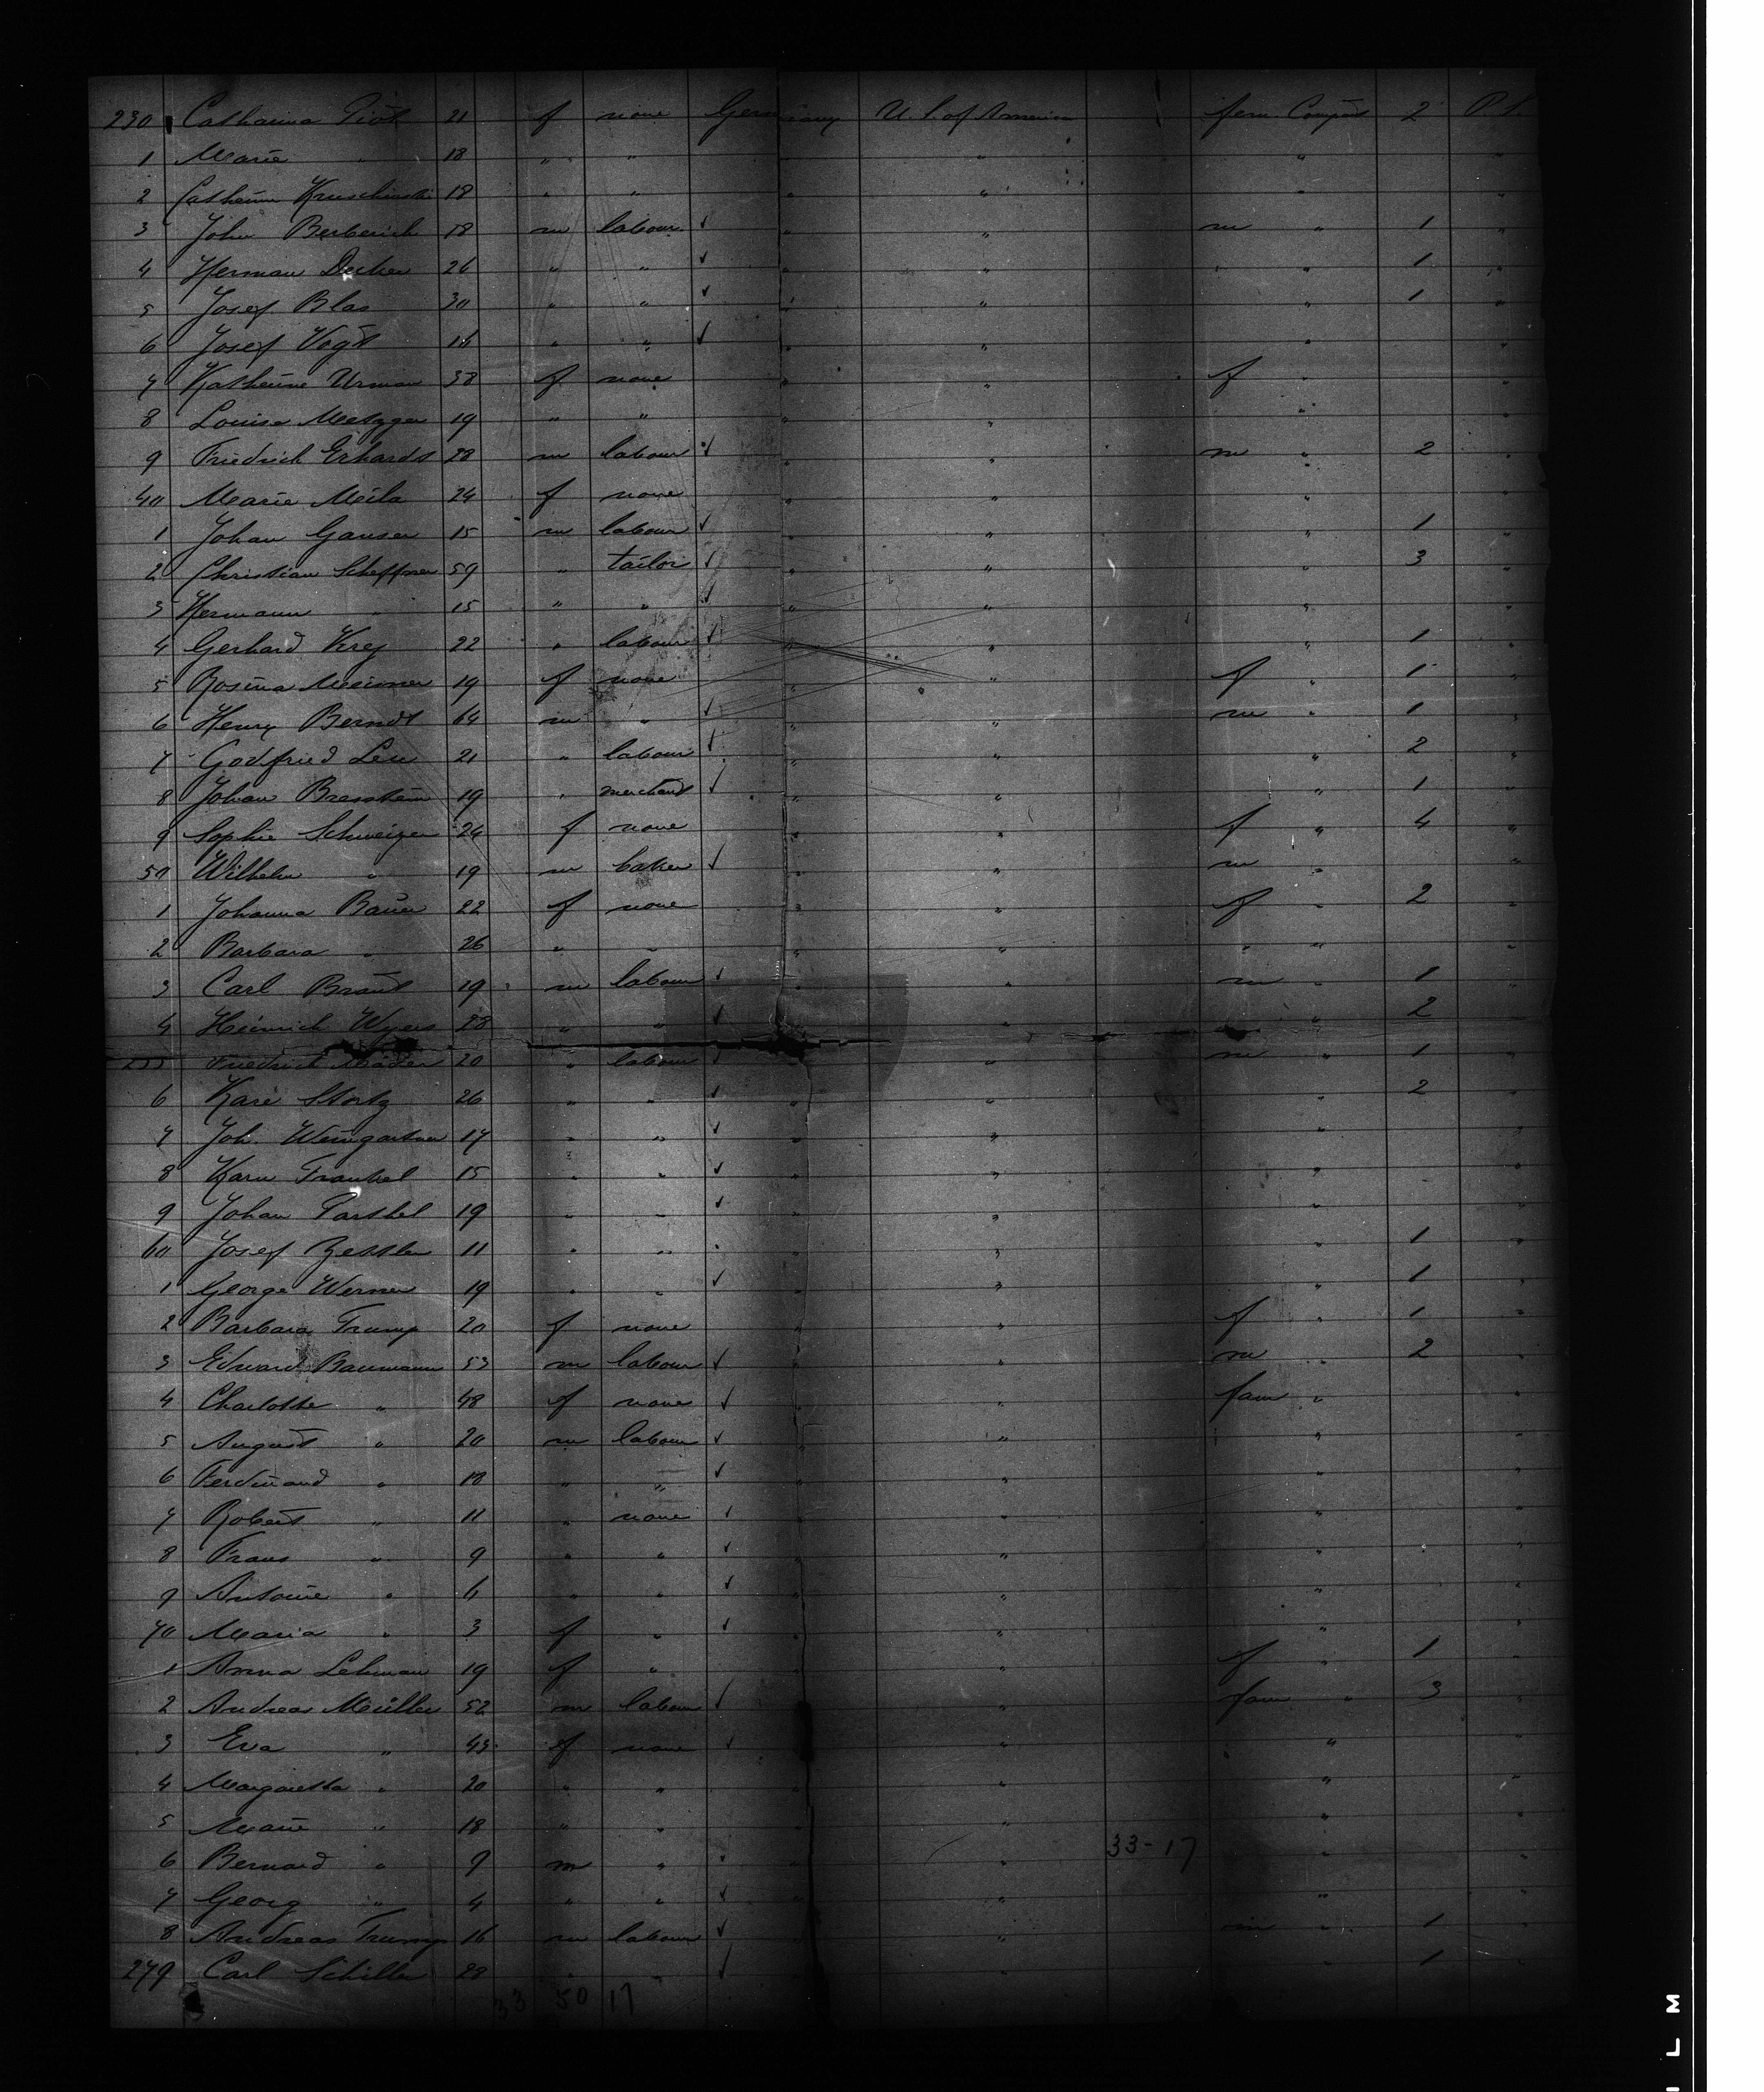 230 Catharina Piot 21 f none Germany U. S. of America fem. Compart 2 P. S.
1 Marie " 18 " " " " "
2 Catharina 18 " " " " " "
3 John Berberich 18 m labour ✓ " " m " 1 "
4 Herman Decker 26 " " ✓ " " " 1 "
5 Josef Blas 30 " " ✓ " " " 1 "
6 Josef Vogt 16 " " ✓ " " " "
7 Katherine Urman 38 f none " " f " "
8 Louise Metzger 19 " " " " " "
9 Friedrich Erhardt 28 m labour ✓ " " m " 2 "
40 Marie Meila 24 f none " " " "
1 Johan Ganser 15 m labour ✓ " " " 1 "
2 Christian Scheffner 59 " tailor ✓ " " " 3 "
3 Hermann " 15 " " ✓ " " " "
4 Gerhard Krey 22 " labour ✓ " " " 1 "
5 Rosina 19 f none " " f " 1 "
6 Henry Berndt 64 m " ✓ " " m " 1 "
7 Godfried Leu 21 " labour ✓ " " " 2 "
8 Johan 19 " merchant ✓ " " " 1 "
9 Sophie Schweizer 24 f none " " f " 4 "
50 Wilhelm " 19 m baker ✓ " " m " "
1 Johanna Bauer 22 f none " " f " 2 "
2 Barbara " 26 " " " " " " "
3 Carl Braut 19 m labour ✓ " " m " 1 "
4 Heinrich Wyers 28 " " ✓ " " 2 "
255 Friedrich Mader 20 " labour ✓ " m " 1 "
6 Stortz 26 " " ✓ " " " 2 "
7 Joh. Weingartner 17 " " ✓ " " " "
8 Frankel 15 " " ✓ " " "
9 Johan 19 " " ✓ " " "
60 Josef Zessler 11 " " " " " 1 "
1 George Werner 19 " " ✓ " " " 1 "
2 Barbara Trump 20 f none " " f " 1 "
3 Edward Baumann 53 m labour ✓ " m " 2 "
4 Charlotte " 48 f none ✓ " fam " "
5 August " 20 m labour ✓ " " " "
6 Ferdinand " 18 " " ✓ " " "
7 Robert " 11 " none ✓ " " "
8 Frans " 9 " " ✓ " " "
9 Antoine " 6 " " ✓ " " " "
70 Maria " 3 f " ✓ " " " "
1 Anna Lehman 19 f " " f " 1 "
2 Andreas Müller 52 m labour ✓ " fam " 3 "
3 Eva " 43 f none ✓ " " "
4 Margaretta " 20 " " " " "
5 Marie " 18 " " " " "
33-17
6 Bernard " 9 m " " " " "
7 Georg " 4 " " ✓ " " " "
8 Andreas Trump 16 m labour ✓ " m " 1 "
279 Carl Schiller 28 " " ✓ " " 1 "
33 50 17
L M